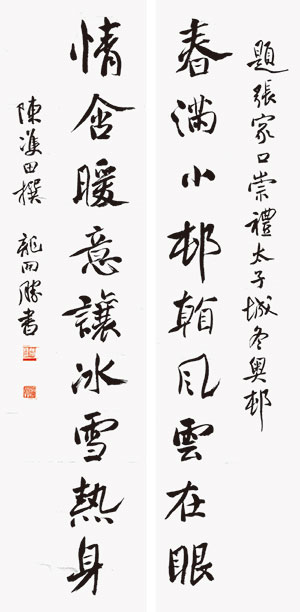 題張家口崇禮太子城冬奧邨
春滿小邨翰風雲在眼
情含暖意讓冰雪熱身
陳漢田撰 龍雨勝書